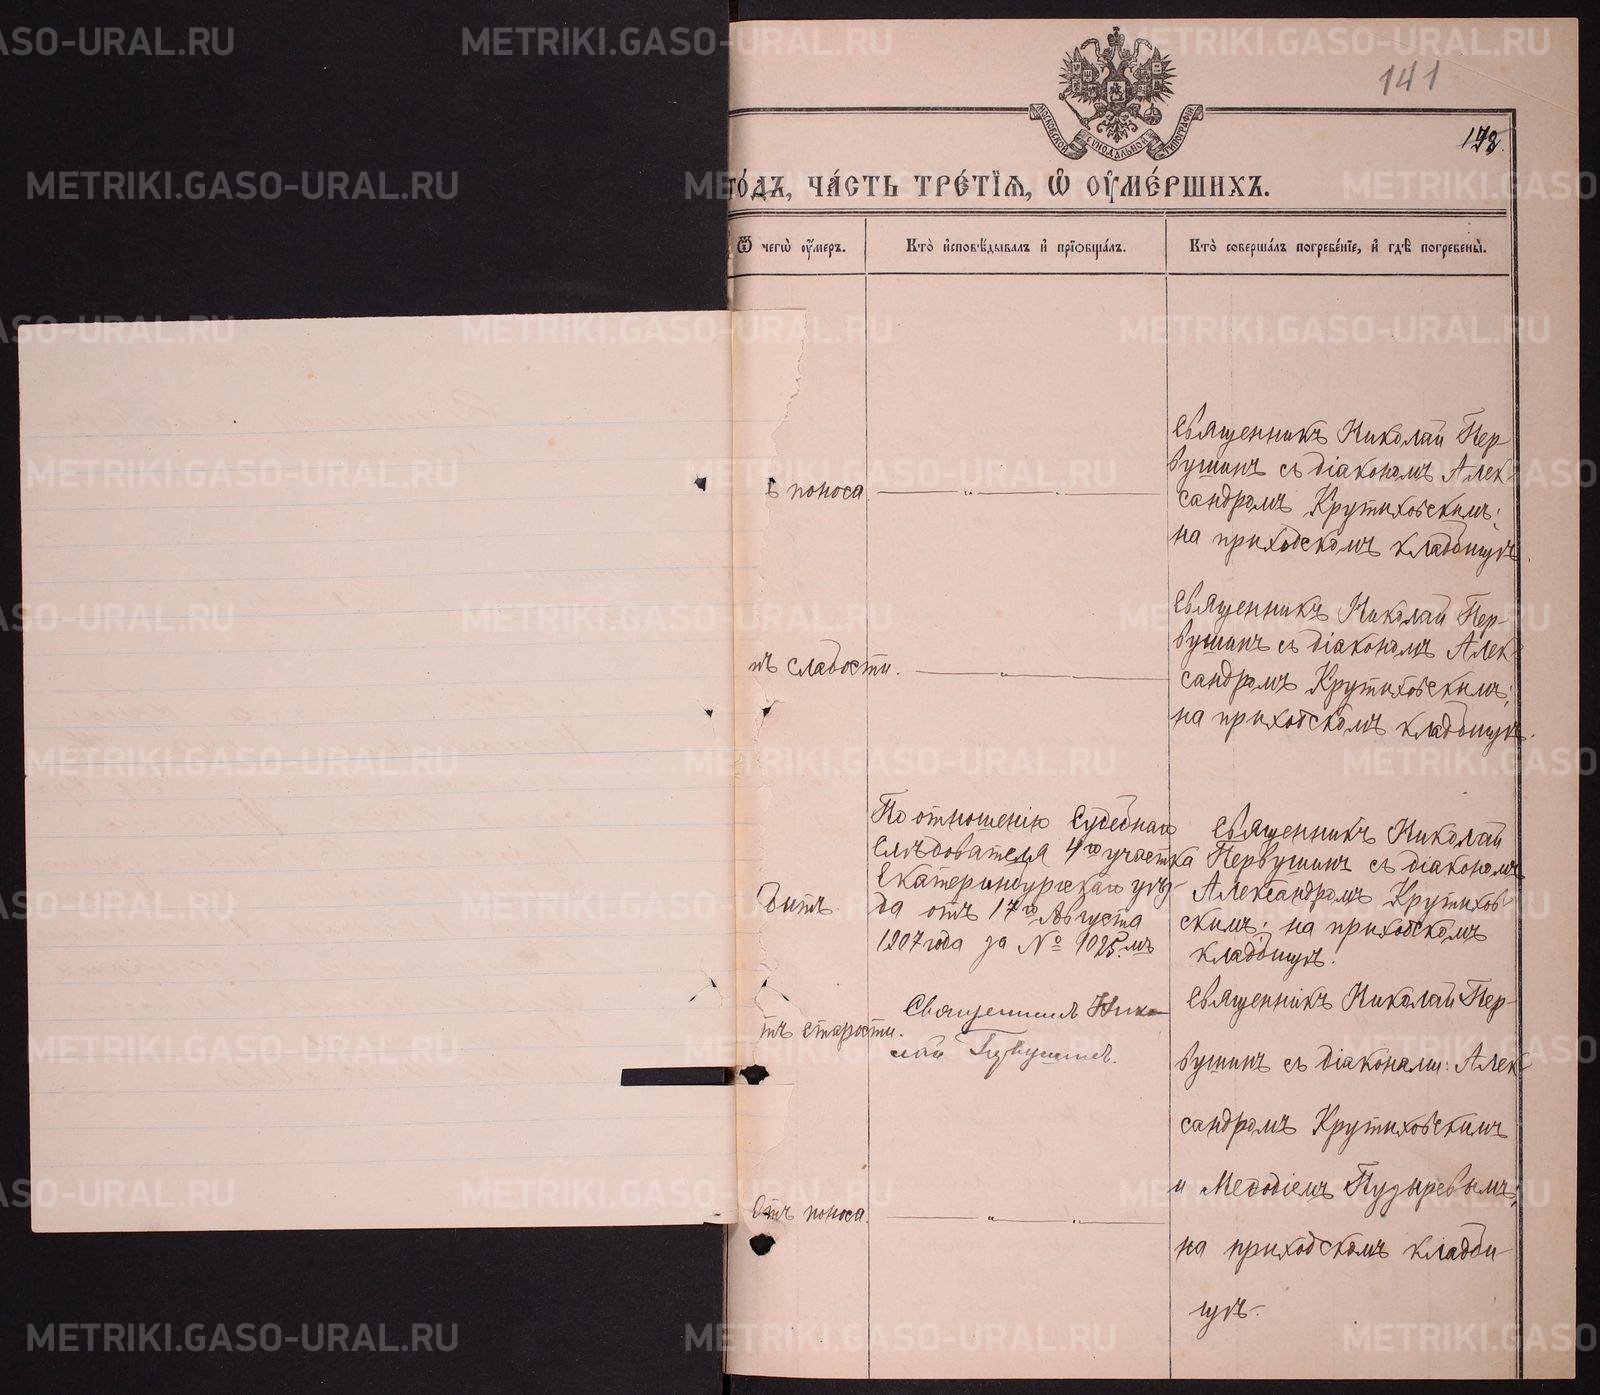 141
178.
МОСКОВСКОЙ СѴНОДАЛЬНОЙ ТИПОГРАФІИ
го́дъ, ча́сть тре́тїѧ, ѡ҆ ᲂу҆ме́ршихъ.
Ѿ чегѡ̀ ᲂу҆́меръ.
Кто̀ и҆сповѣ́дывалъ и҆ прїѻбща́лъ.
Кто̀ соверша́лъ погребе́нїе, и҆ гдѣ̀ погребены̀.
ъ поноса
Священникъ Николай Пер
вушинъ съ діакономъ Алек-
сандромъ Крутиховскимъ;
на приходскомъ кладбищѣ.
тъ слабости.
Священникъ Николай Пер-
вушинъ съ діакономъ Алек-
сандромъ Крутиховскимъ;
на приходскомъ кладбищѣ.
Битъ
По отношенію Судебнаго
Слѣдователя 4го участка
Екатеринбургскаго уѣз-
да отъ 17го Августа
1907 года за № 1025.мъ
Священникъ Николай
Первушинъ съ діакономъ
Александромъ Крутихов-
скимъ; на приходскомъ
кладбищѣ.
тъ старости.
Священникъ Нико-
лай Первушинъ.
Отъ поноса.
Священникъ Николай Пер-
вушинъ съ діаконами: Алек-
сандромъ Крутиховскимъ
и Меѳодіемъ Пузыревымъ,
на приходскомъ кладби
щѣ.
METRIKI.GASO-URAL.RU